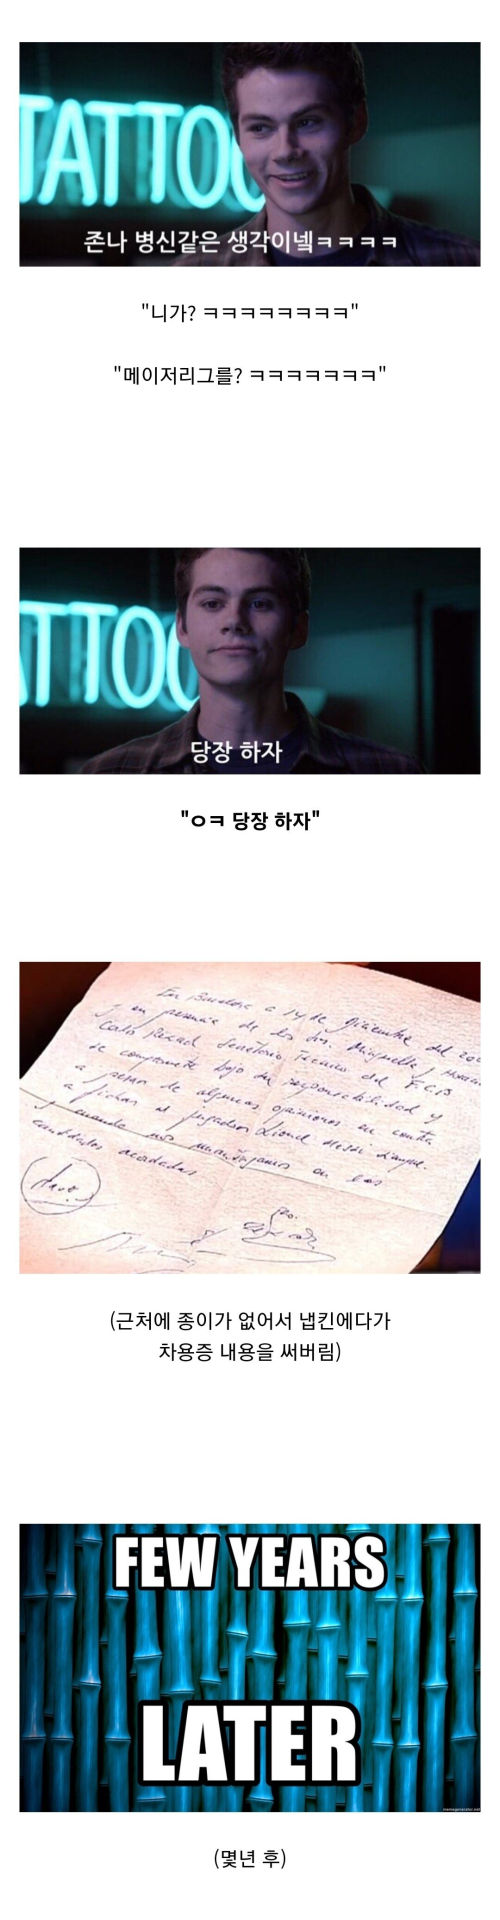 TATTOO
존나 병신같은 생각이넼ㅋㅋㅋㅋ
"니가? ㅋㅋㅋㅋㅋㅋㅋㅋ"
"메이저리그를? ㅋㅋㅋㅋㅋㅋㅋ"
TTOO
당장 하자
"ㅇㅋ 당장 하자"
En Barcelona a 14 de Diciembre del
y en presencia de los Srs. Minguella y
Carlo Rexach Secretario Técnico del F.C.B
se compromete bajo su responsabilidad y
a pesar de algunas opiniones en contra
a fichar al jugador Lionel Messi
y cuando nos mantengamos en las
cantidades acordadas
(근처에 종이가 없어서 냅킨에다가
차용증 내용을 써버림)
FEW YEARS
LATER
memegenerator.net
(몇년 후)